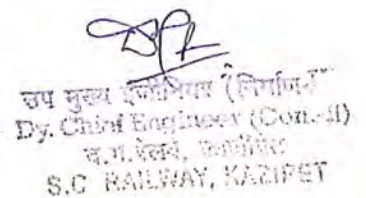 उप मुख्य इंजीनियर (निर्माण)
Dy. Chief Engineer (Con.-II)
द.म.रेलवे,
S.C RAILWAY, KAZIPET